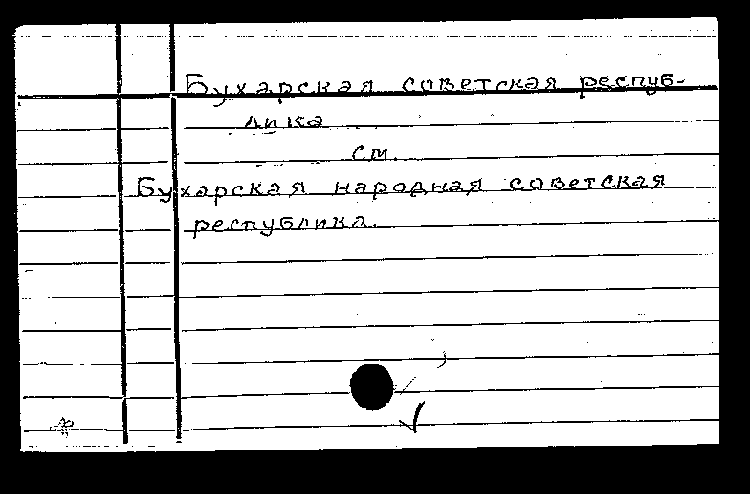 Бухарская советская респуб-
лика
см.
Бухарская народная советская
республика.